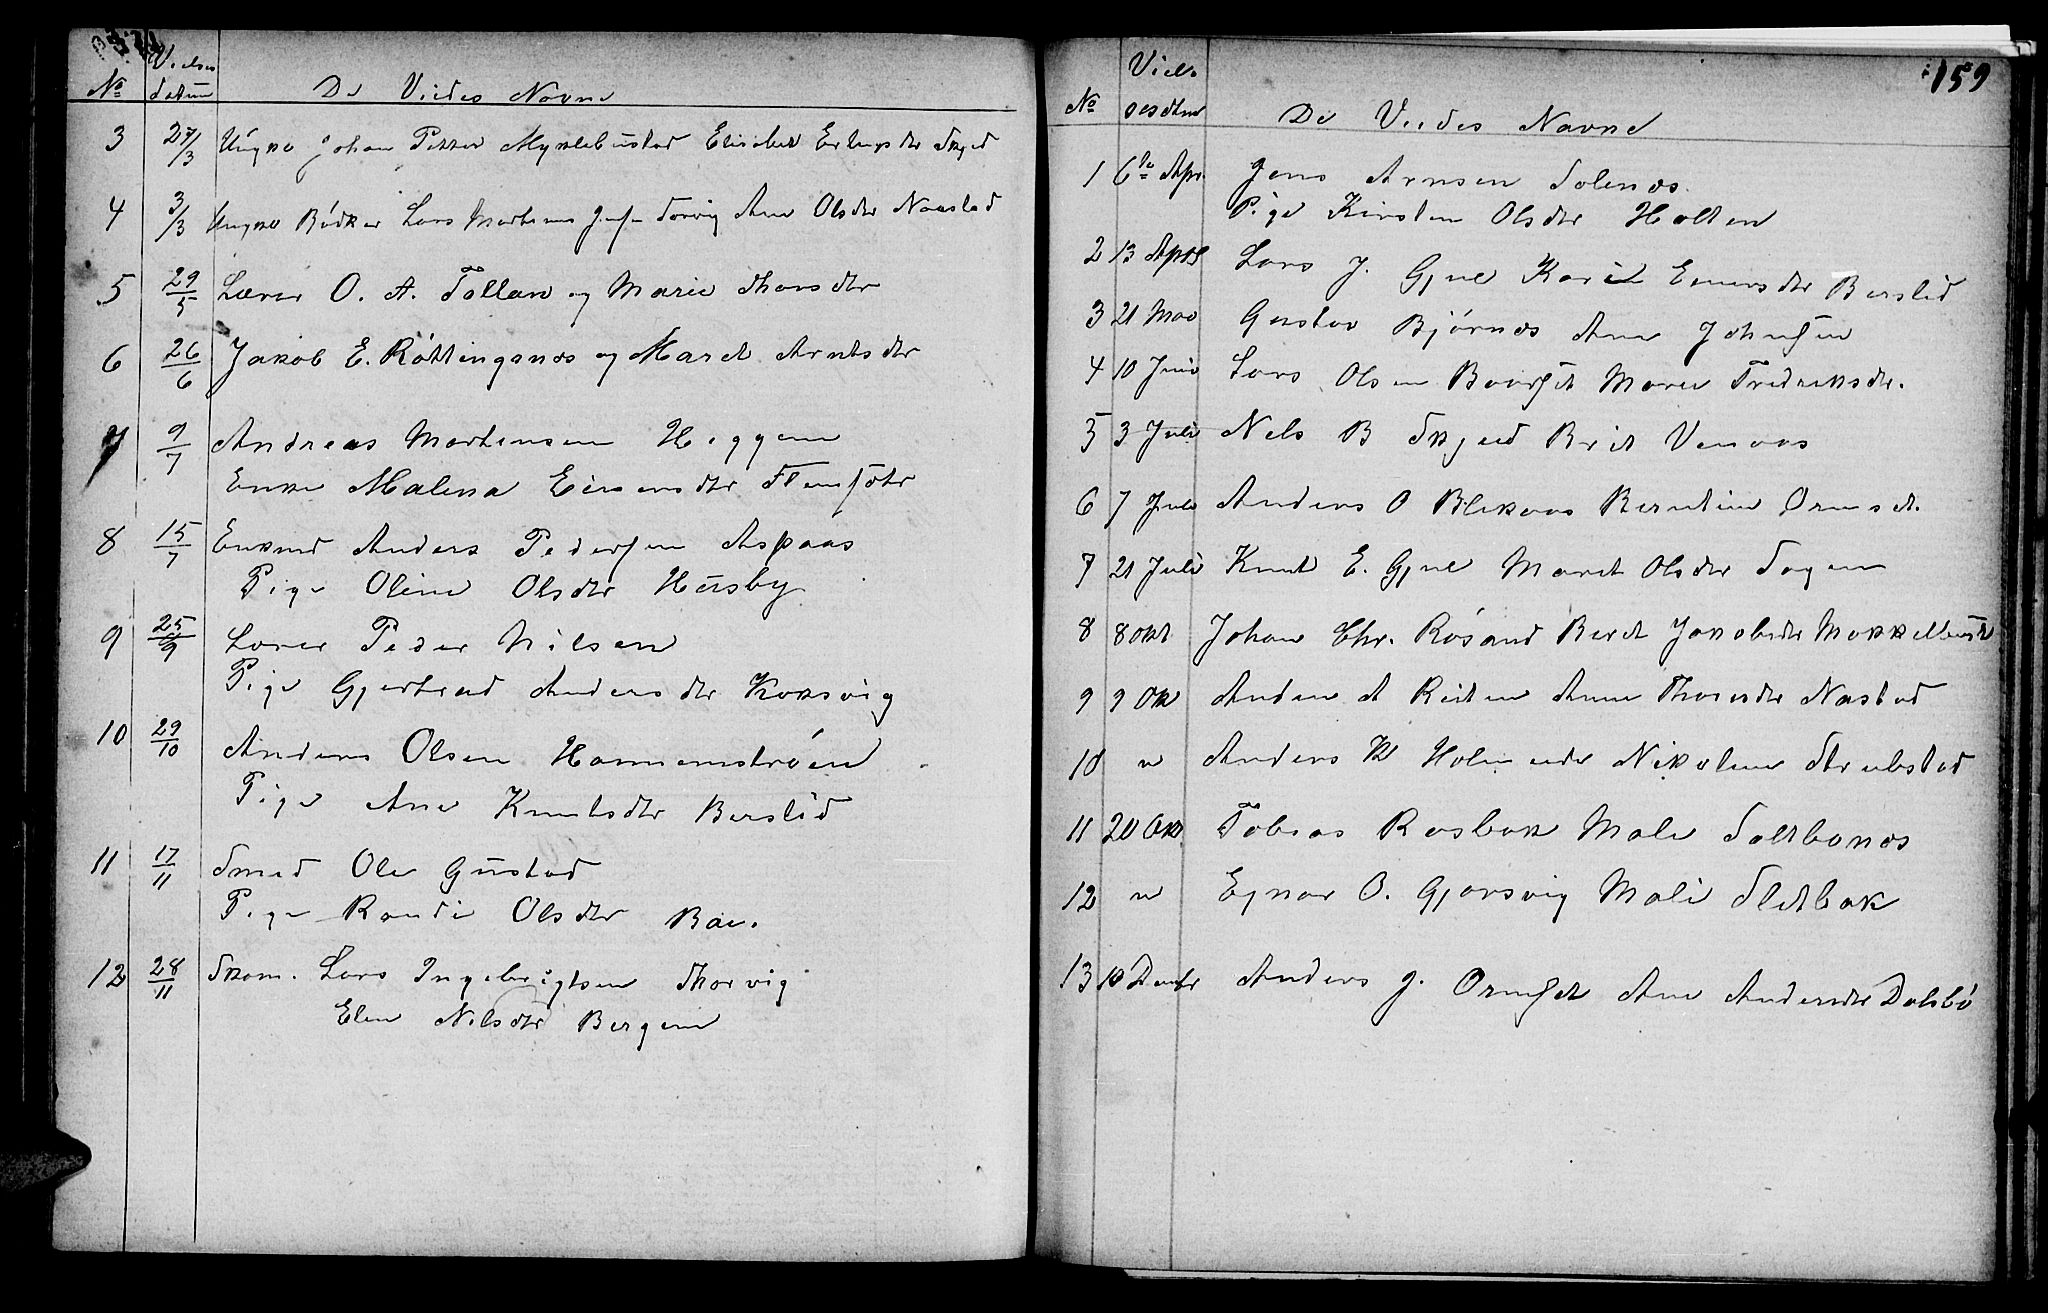 No Vielses datum De Viedes Navne
3 27/3 Ungka Johan Petter Myklebustad Elisabet Erlingsdtr Skjed
4 3/3 Ungka Bødker Lars Mortensen Ane Olsdtr Naastad
5 29/5 Lærer O. A. Tollan og Marie Thorsdtr
6 26/6 Jakob E. Røttingsnes og Maret Arntsdtr
7 9/7 Andreas Mortensen Heggem
Enke Malena Einersdtr
8 15/7 Enkmd Anders Pedersen Aspaas
Pige Oline Olsdtr Husby
9 25/9 Lærer Peder Nilsen
Pige Gjertrud Andersdtr Korsvig
10 29/10 Anders Olsen Hammerstrøen
Pige Ane Knutsdtr Berslid
11 17/11 Smed Ole Gustad
Pige Randi Olsdtr Bae.
12 28/11 Skom. Lars Ingebrigtsen Thorvig
Elen Nilsdtr Bergem
159
No Viel- sesdtm De Viedes Navne
1 6te Apr. Jens Arnsen Solenes.
Pige Kirsten Olsdtr Holten
2 13 Apr Lars J. Gjul Karen Einersdtr Berslid
3 21 Mai Gustav Bjørnes Ane Johnsen
4 10 Juni Lars Olsen Marie Fredriksdtr.
5 3 Juli Nels B Skjed Brit Venaas
6 7 Juli Anders O Blekaas Berntine Ornset.
7 21 Juli Knut E. Gjul Maret Olsdtr Sogn
8 8 Okt Johan Chr. Røsand Beret Jakobsdtr
9 9 Ok A Reiten Anne Thorsdtr Nastad
10 " Anders K Nikoline Strubstad
11 20 Ok. Tobias Rosbak Mali Saltbones
12 " Egnar O. Gjørsvig Mali Sletbak
13 Anders J. Ornset Ane Andersdtr Dalsbø